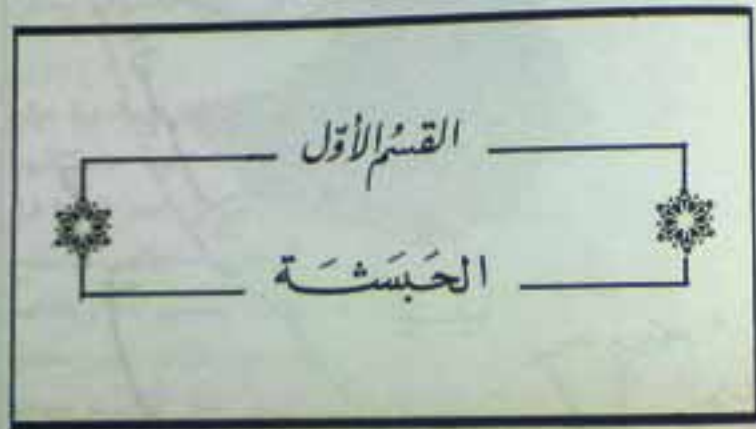 القسْمُ الأوّل
الحَبَشَة